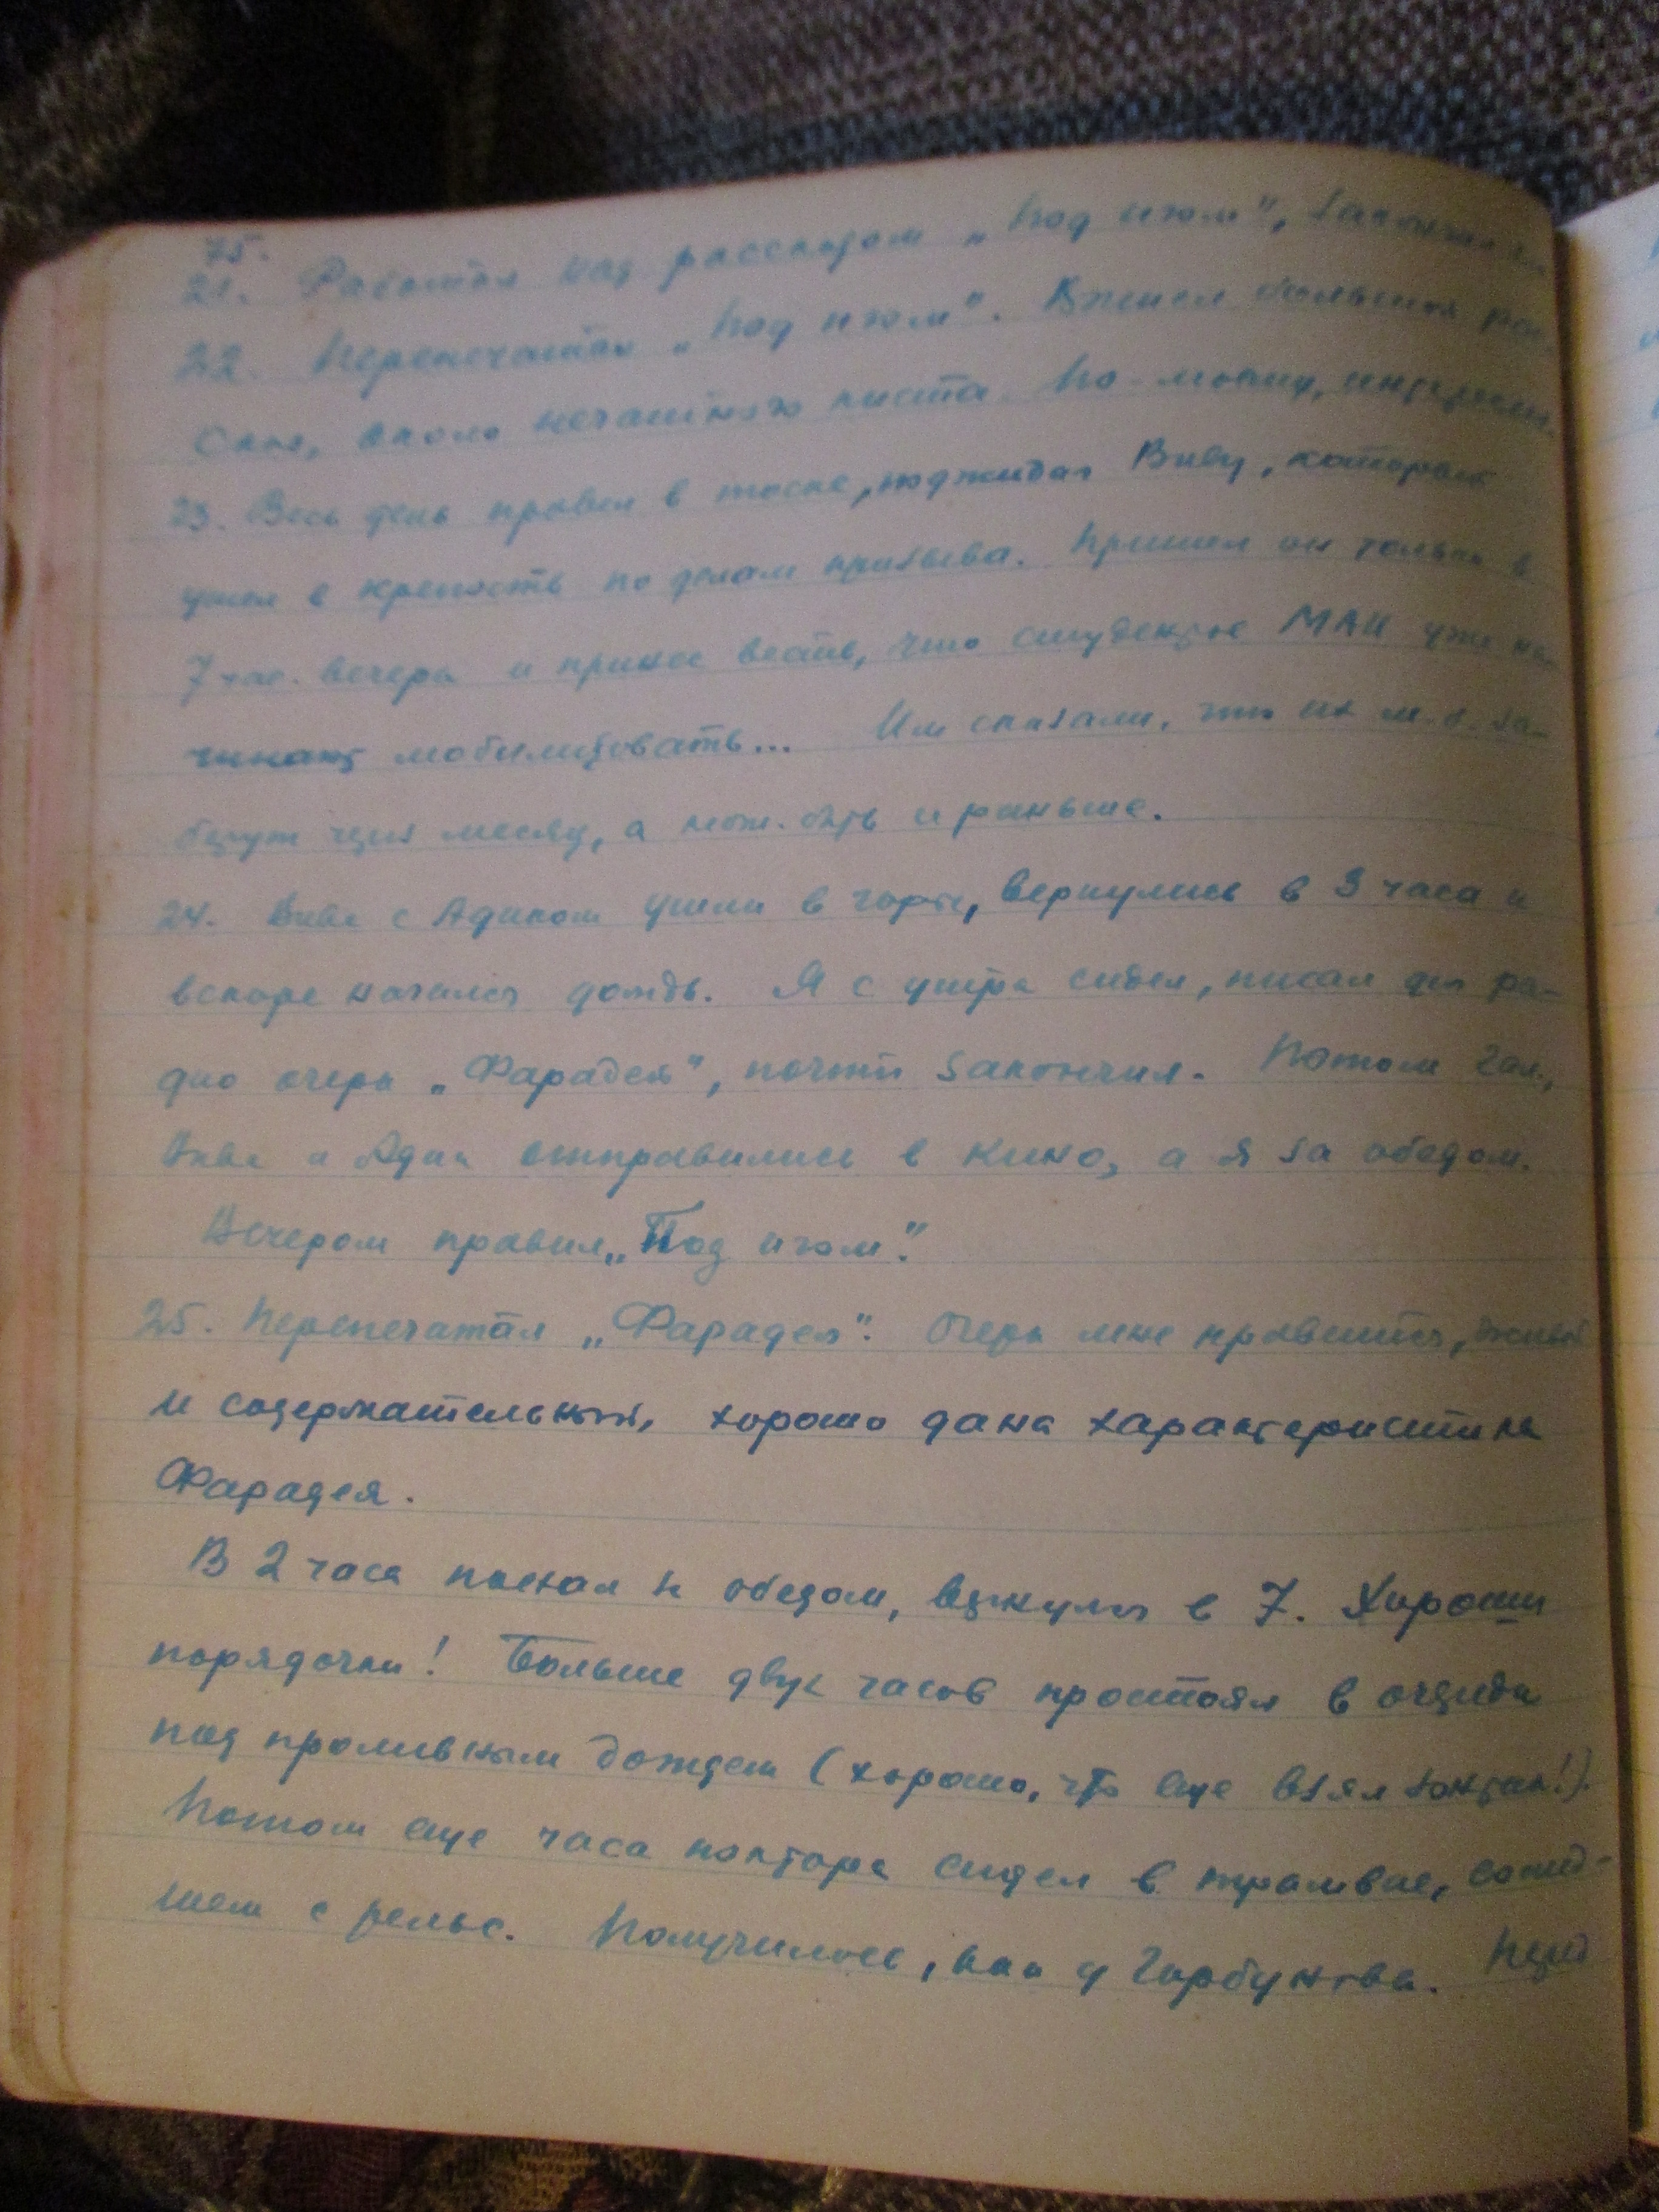 75.
21. Работал над рассказом „Под игом", закончил
22. Перепечатал „Под игом". Вышел большой рас-
сказ, около печатного листа. По-моему,
23. Весь день провел в тоске, поджидая Виву, который
ушел в крепость по делам призыва. Пришел он только в
7 час. вечера и принес весть, что студентов МАИ уже на-
чинают мобилизовать... Им сказали, что их м.б. за-
берут через месяц, а мож. быть и раньше.
24. Вива с Адиком ушли в горы, вернулись в 3 часа и
вскоре начался дождь. Я с утра сидел, писал для ра-
дио очерк „Фарадей", почти закончил. Потом Галя,
Вива и Адик отправились в кино, а я за обедом.
Вечером правил „Под игом".
25. Перепечатал „Фарадея". Очерк мне нравится, живой
и содержательный, хорошо дана характеристика
Фарадея.
В 2 часа поехал за обедом, вернулся в 7. Хороши
порядочки! Больше двух часов простоял в очереди
под проливным дождем (хорошо, что еще взял зонтик!).
Потом еще часа полтора сидел в трамвае, сошед-
шем с рельс. Получилось, как у Горбунова.